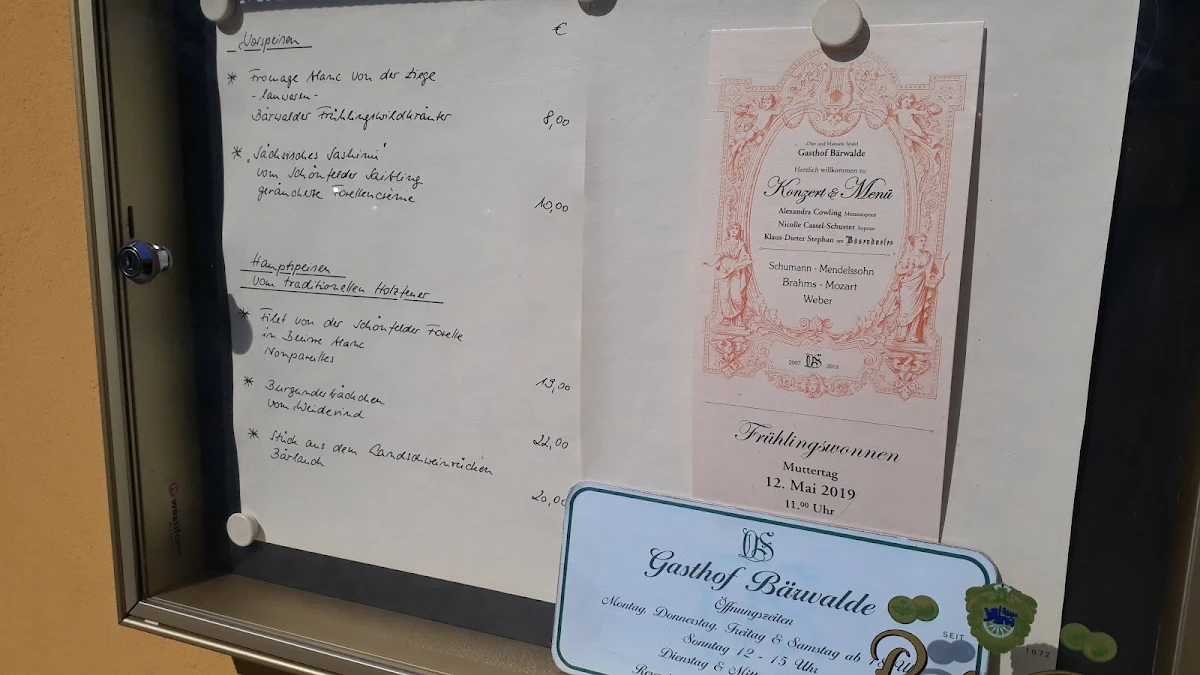 Vorspeisen
€
* Fromage blanc von der Ziege
- lauwarm -
Bärwalder Frühlingswildkräuter
8,00
* „Sächsisches Sashimi“
vom Schönfelder Saibling
geräucherte Forellencrème
10,00
Hauptspeisen
vom traditionellen Holzfeuer
* Filet von der Schönfelder Forelle
in Beurre blanc
Nonpareilles
19,00
* Burgunderbäckchen
vom Weiderind
22,00
* Stück aus dem Landschweinrücken
Bärlauch
20,00
Gasthof Bärwalde
Herzlich willkommen zu
Konzert & Menü
Alexandra Cowling Mezzosopran
Nicolle Cassel-Schuster Sopran
Klaus-Dieter Stephan am Bösendorfer
Schumann - Mendelssohn
Brahms - Mozart
Weber
2007 2019
Frühlingswonnen
Muttertag
12. Mai 2019
11.00 Uhr
Gasthof Bärwalde
Öffnungszeiten
Montag, Donnerstag, Freitag & Samstag ab
Sonntag 12 - 15 Uhr
Dienstag &
SEIT
1872